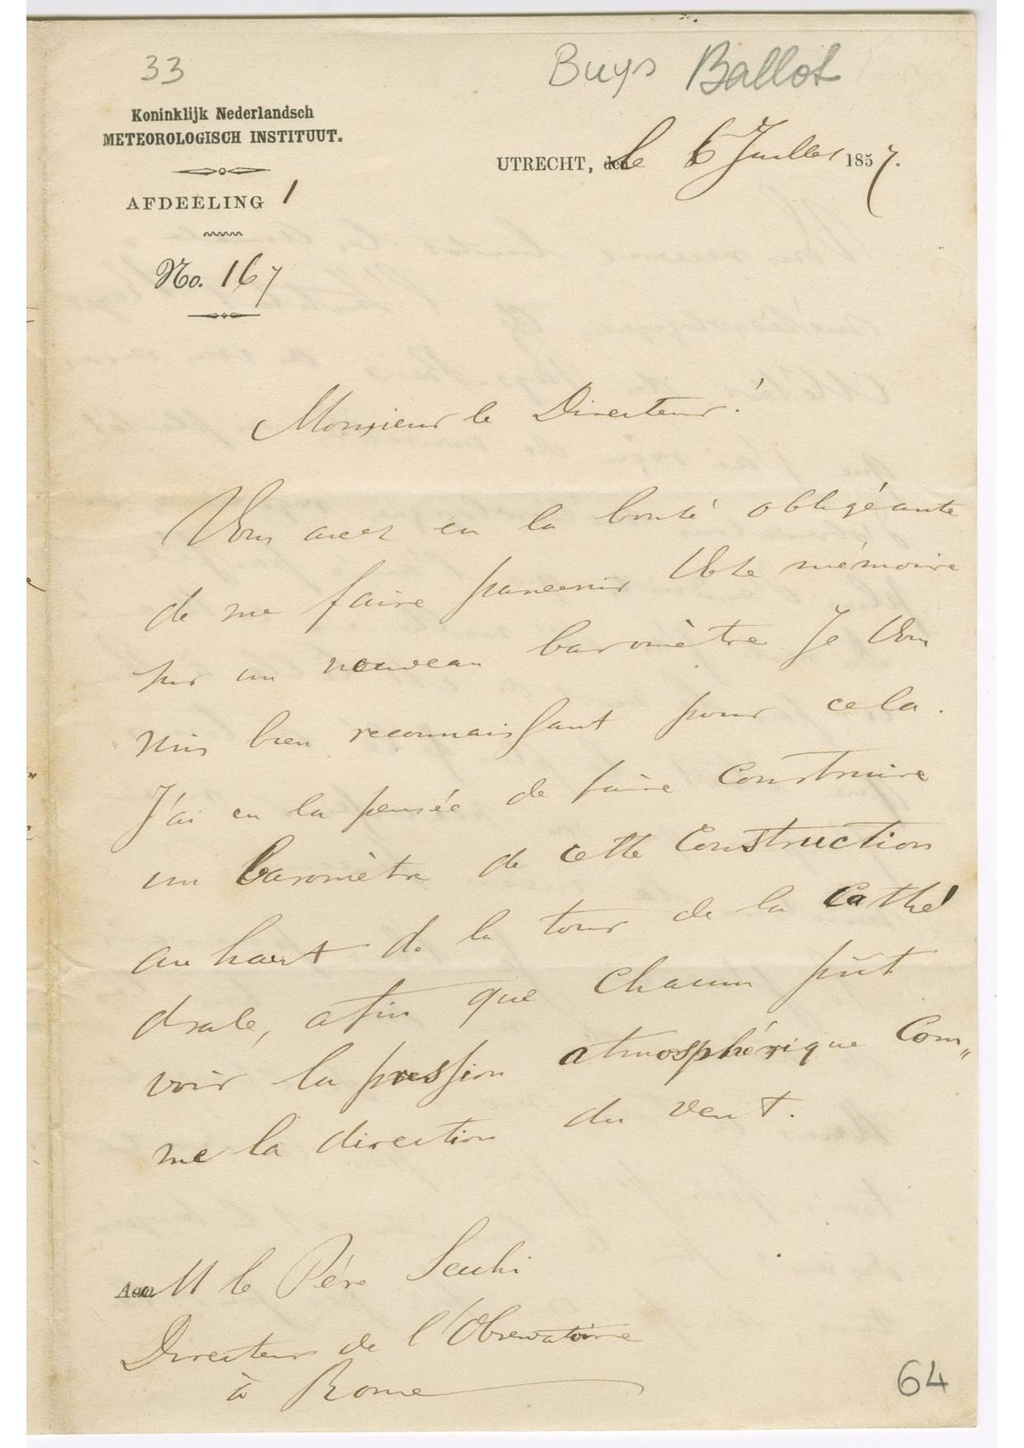 33
Buys Ballot
Koninklijk Nederlandsch
METEOROLOGISCH INSTITUUT.
UTRECHT, den le 6 Juillet 1857.
AFDEELING 1
No. 167
Monsieur le Directeur!
Vous avez eu la bonté obligéante
de me faire parvenir Vote mémoire
sur un nouveau baromètre Je Vous
suis bien reconnaissant pour cela.
J'ai eu la pensée de faire construire
un baromètre de cette Construction
au haut de la tour de la Cathé
drale, afin que chacun pût
voir la pression atmosphérique Com„
me la direction du vent.
Aan M le Père Secchi
Directeur de l'Observatoire
à Rome
64